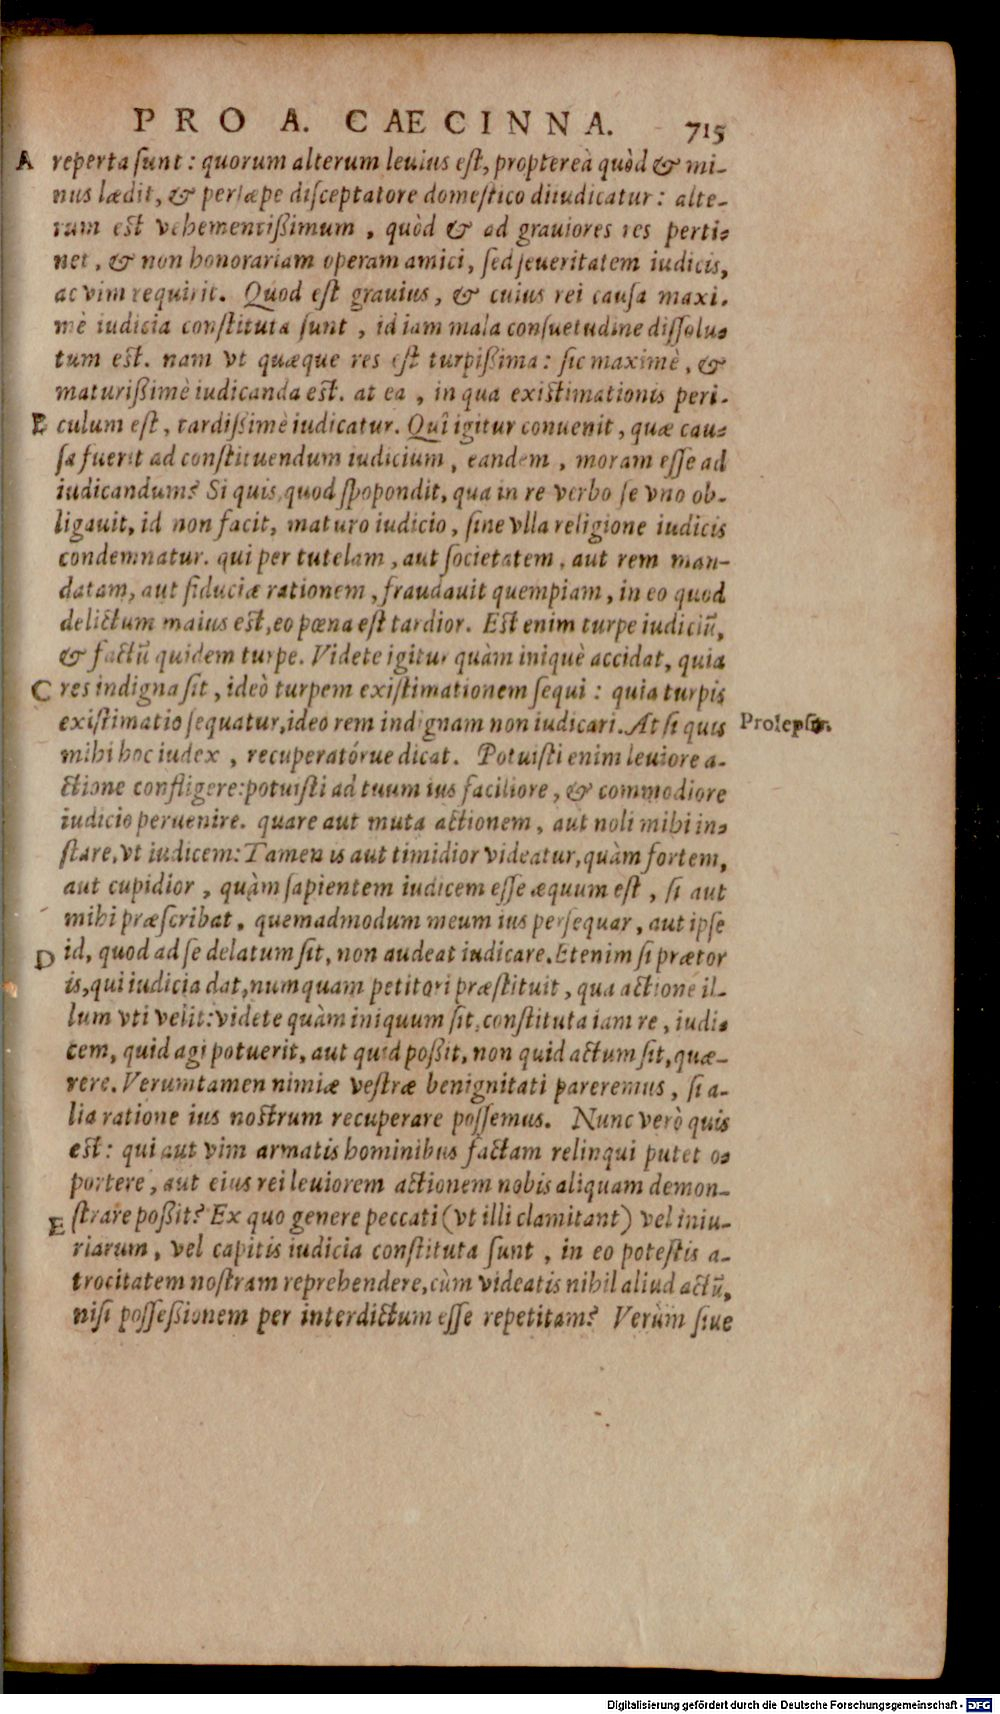 PRO A. CAECINNA. 715
A reperta sunt: quorum alterum leuius est, proptereà quòd & mi-
nus lædit, & persæpe disceptatore domestico diiudicatur: alte-
rum est vehementißimum, quòd & ad grauiores res perti-
net, & non honorariam operam amici, sed seueritatem iudicis,
ac vim requirit. Quod est grauius, & cuius rei causa maxi-
mè iudicia constituta sunt, id iam mala consuetudine dissolu-
tum est. nam vt quæque res est turpißima: sic maximè, &
maturißimè iudicanda est. at ea, in qua existimationis peri-
B culum est, tardißimè iudicatur. Quî igitur conuenit, quæ cau-
sa fuerit ad constituendum iudicium, eandem, moram esse ad
iudicandum? Si quis, quod spopondit, qua in re verbo se vno ob-
ligauit, id non facit, maturo iudicio, sine vlla religione iudicis
condemnatur. qui per tutelam, aut societatem, aut rem man-
datam, aut fiduciæ rationem, fraudauit quempiam, in eo quod
delictum maius est, eo pœna est tardior. Est enim turpe iudiciũ,
& factũ quidem turpe. Videte igitur quàm iniquè accidat, quia
C res indigna sit, ideò turpem existimationem sequi: quia turpis
existimatio sequatur, ideo rem indignam non iudicari. At si quis Prolepsis.
mihi hoc iudex, recuperatórue dicat. Potuisti enim leuiore a-
ctione confligere: potuisti ad tuum ius faciliore, & commodiore
iudicio peruenire. quare aut muta actionem, aut noli mihi in-
stare, vt iudicem: Tamen is aut timidior videatur, quàm fortem,
aut cupidior, quàm sapientem iudicem esse æquum est, si aut
mihi præscribat, quemadmodum meum ius persequar, aut ipse
D id, quod ad se delatum sit, non audeat iudicare. Etenim si prætor
is, qui iudicia dat, numquam petitori præstituit, qua actione il-
lum vti velit: videte quàm iniquum sit, constituta iam re, iudi-
cem, quid agi potuerit, aut quid poßit, non quid actum sit, quæ-
rere. Verumtamen nimiæ vestræ benignitati pareremus, si a-
lia ratione ius nostrum recuperare possemus. Nunc verò quis
est: qui aut vim armatis hominibus factam relinqui putet o-
portere, aut eius rei leuiorem actionem nobis aliquam demon-
E strare poßit? Ex quo genere peccati (vt illi clamitant) vel iniu-
riarum, vel capitis iudicia constituta sunt, in eo potestis a-
trocitatem nostram reprehendere, cùm videatis nihil aliud actũ,
nisi posseßionem per interdictum esse repetitam? Verùm siue
Digitalisierung gefördert durch die Deutsche Forschungsgemeinschaft - DFG